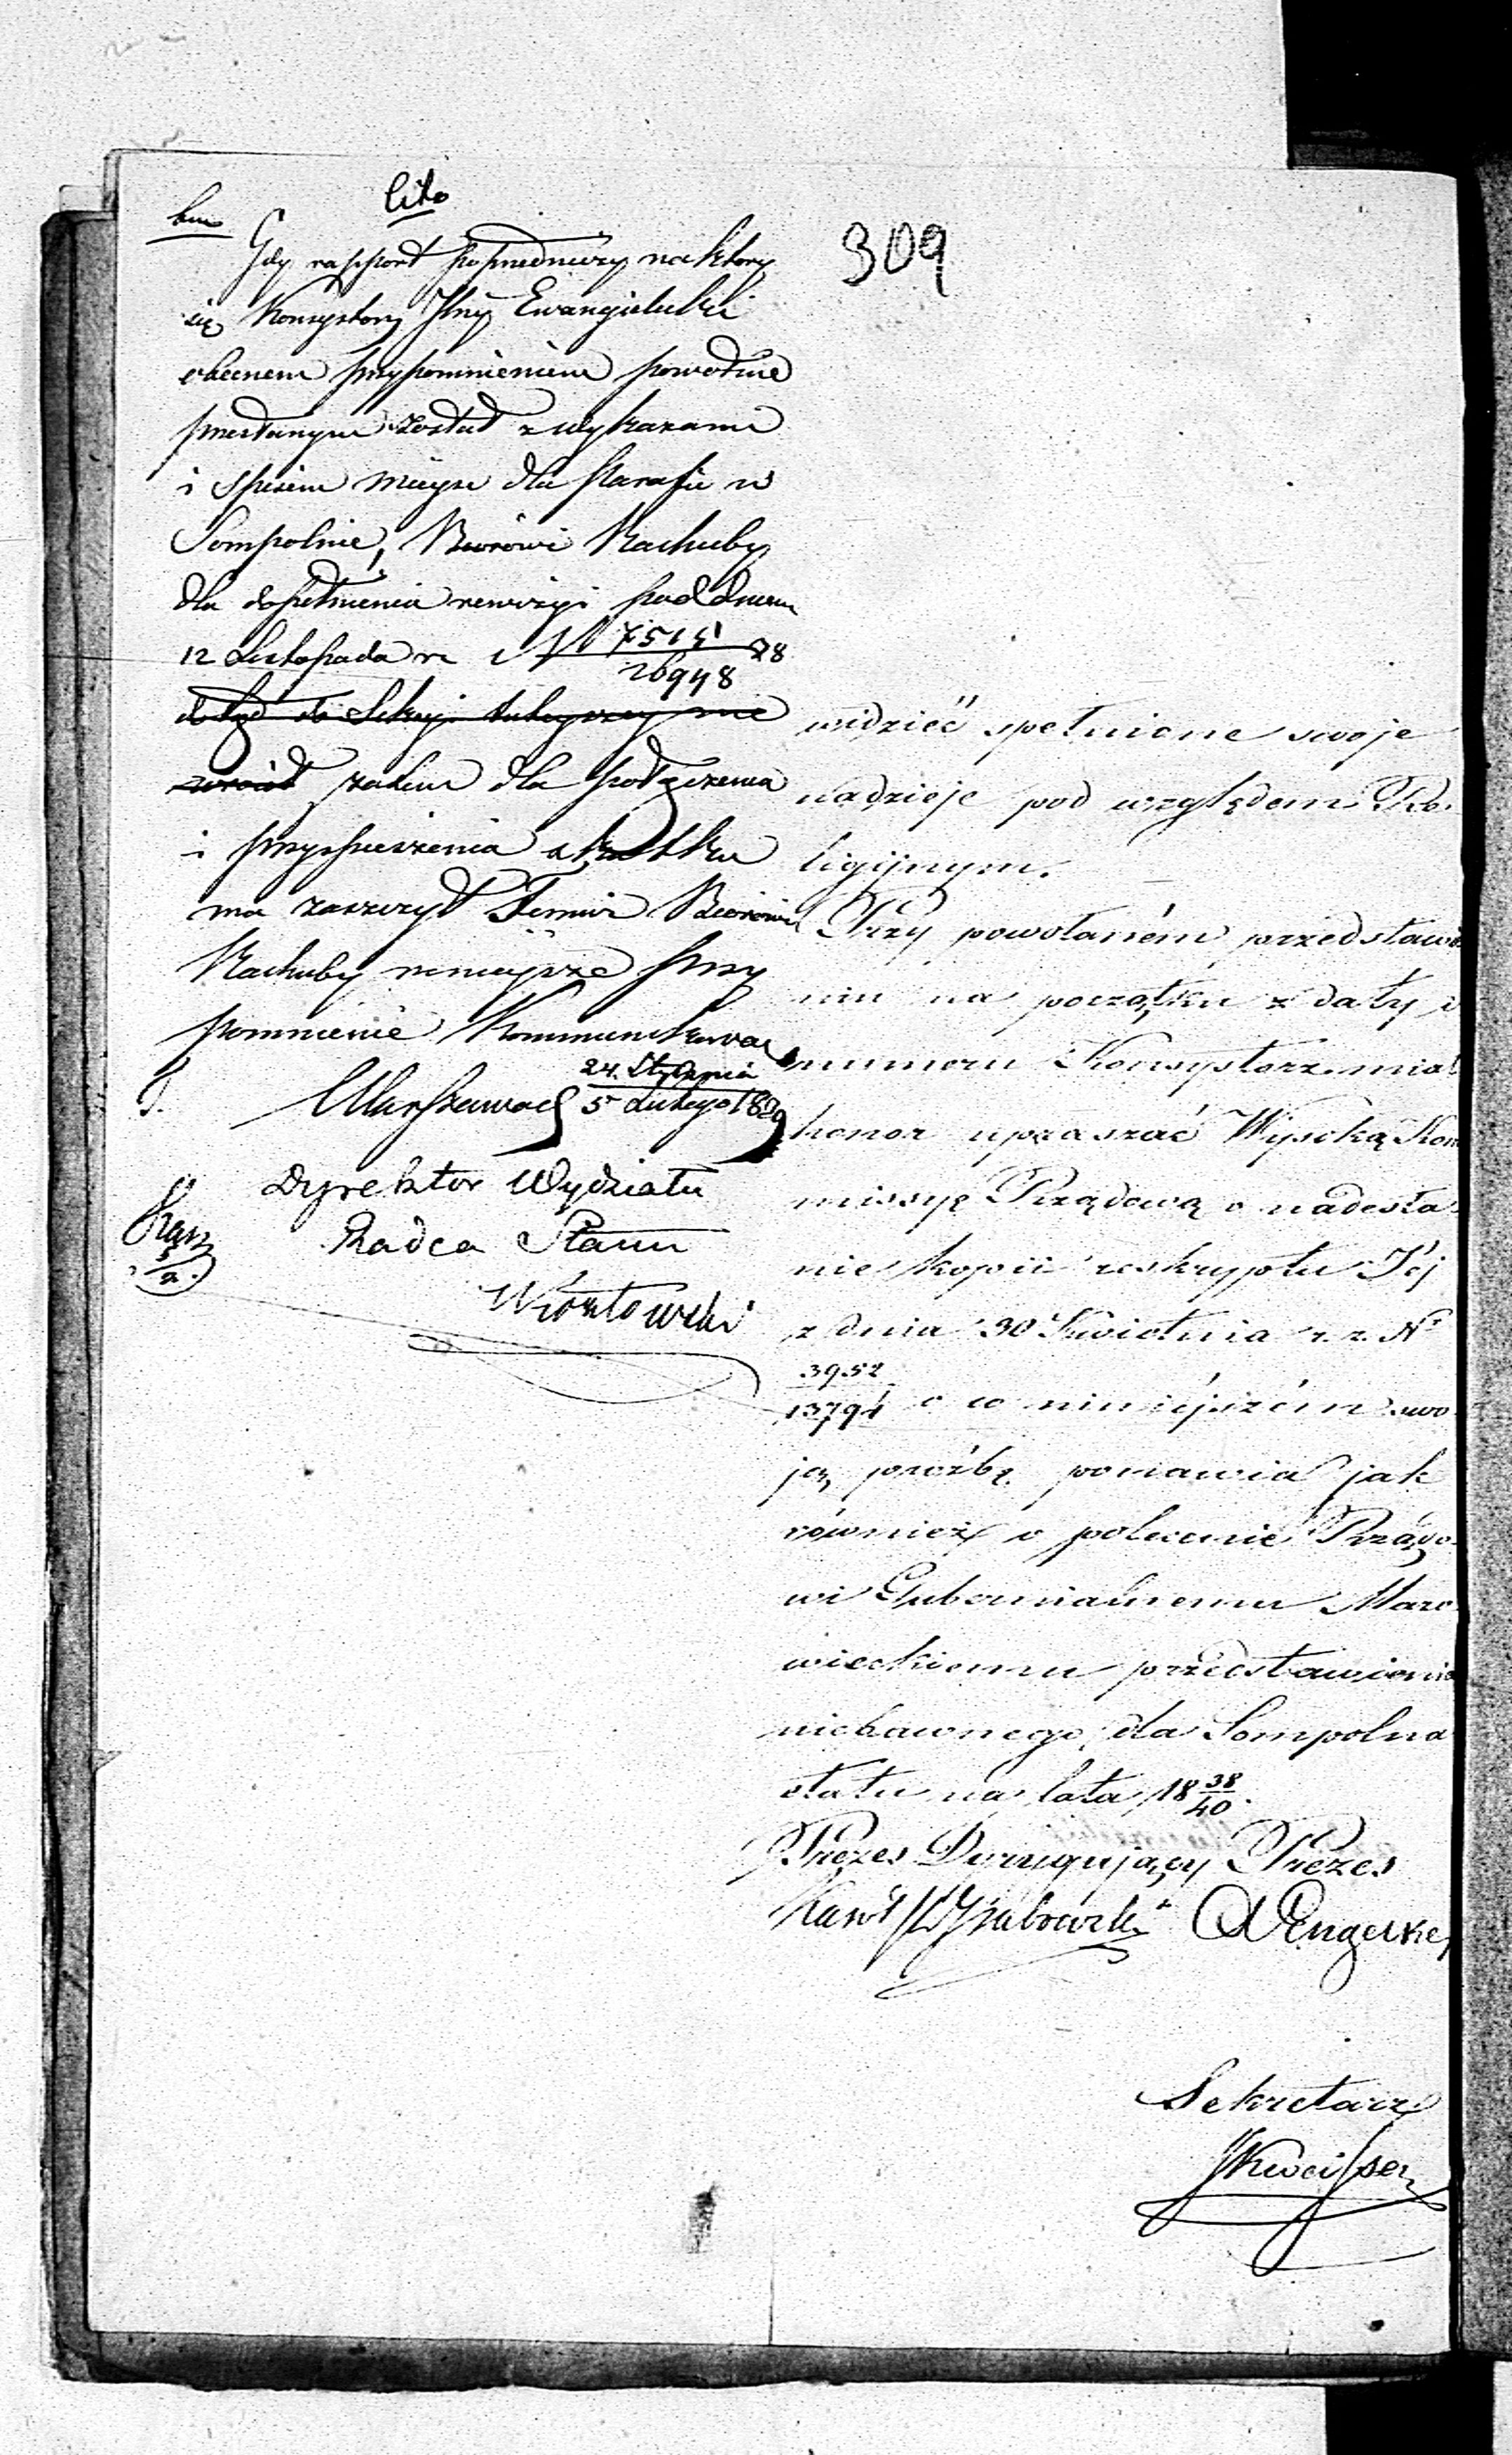 Cito
309
Gdy rapport poprzedniczy na który
się Konsystorz Jlny Ewangielicki
obecnem przypomnieniem powołuje
przesłanym został z wykazami
i spisem miejsc dla Parafii w
Sompolnie, Biorowi Rachuby
dla dopełnienia rewizyi pod dniem
12 Listopada rz N 7515/26948 28
dotąd do Sekcyi tutejszey nie
wrócił zatem dla połączenia
i przyspieszenia skutku
ma zaszczyt Temuż Biorowi
Rachuby niniejsze przy
pomnienie Kommunikować
Warszawa d 24. Stycznia / 5 Lutego 1839
Dyrektor Wydziału
Radca Stanu
widzieć spełnione swoje
nadzieje pod względem Re-
ligijnym.
Przy powołaném przedstawie
niu na początku z daty i
numeru Konsystorz miał
honor upraszać Wysoką Kom
missyę Rządową o nadesła-
nie kopii reskryptu Jéj
z dnia 30 Kwietnia r. z. Nr
3952/13794 o co niniéjszém swo
ją prożbę ponawia jak
również o polecenie Rządo-
wi Gubernialnemu Mazo-
wieckiemu przedstawienia
niebawnego, dla Sompolna
etatu na lata 18 38/40.
Prezes Dyrygujący Prezes
Sekretarz